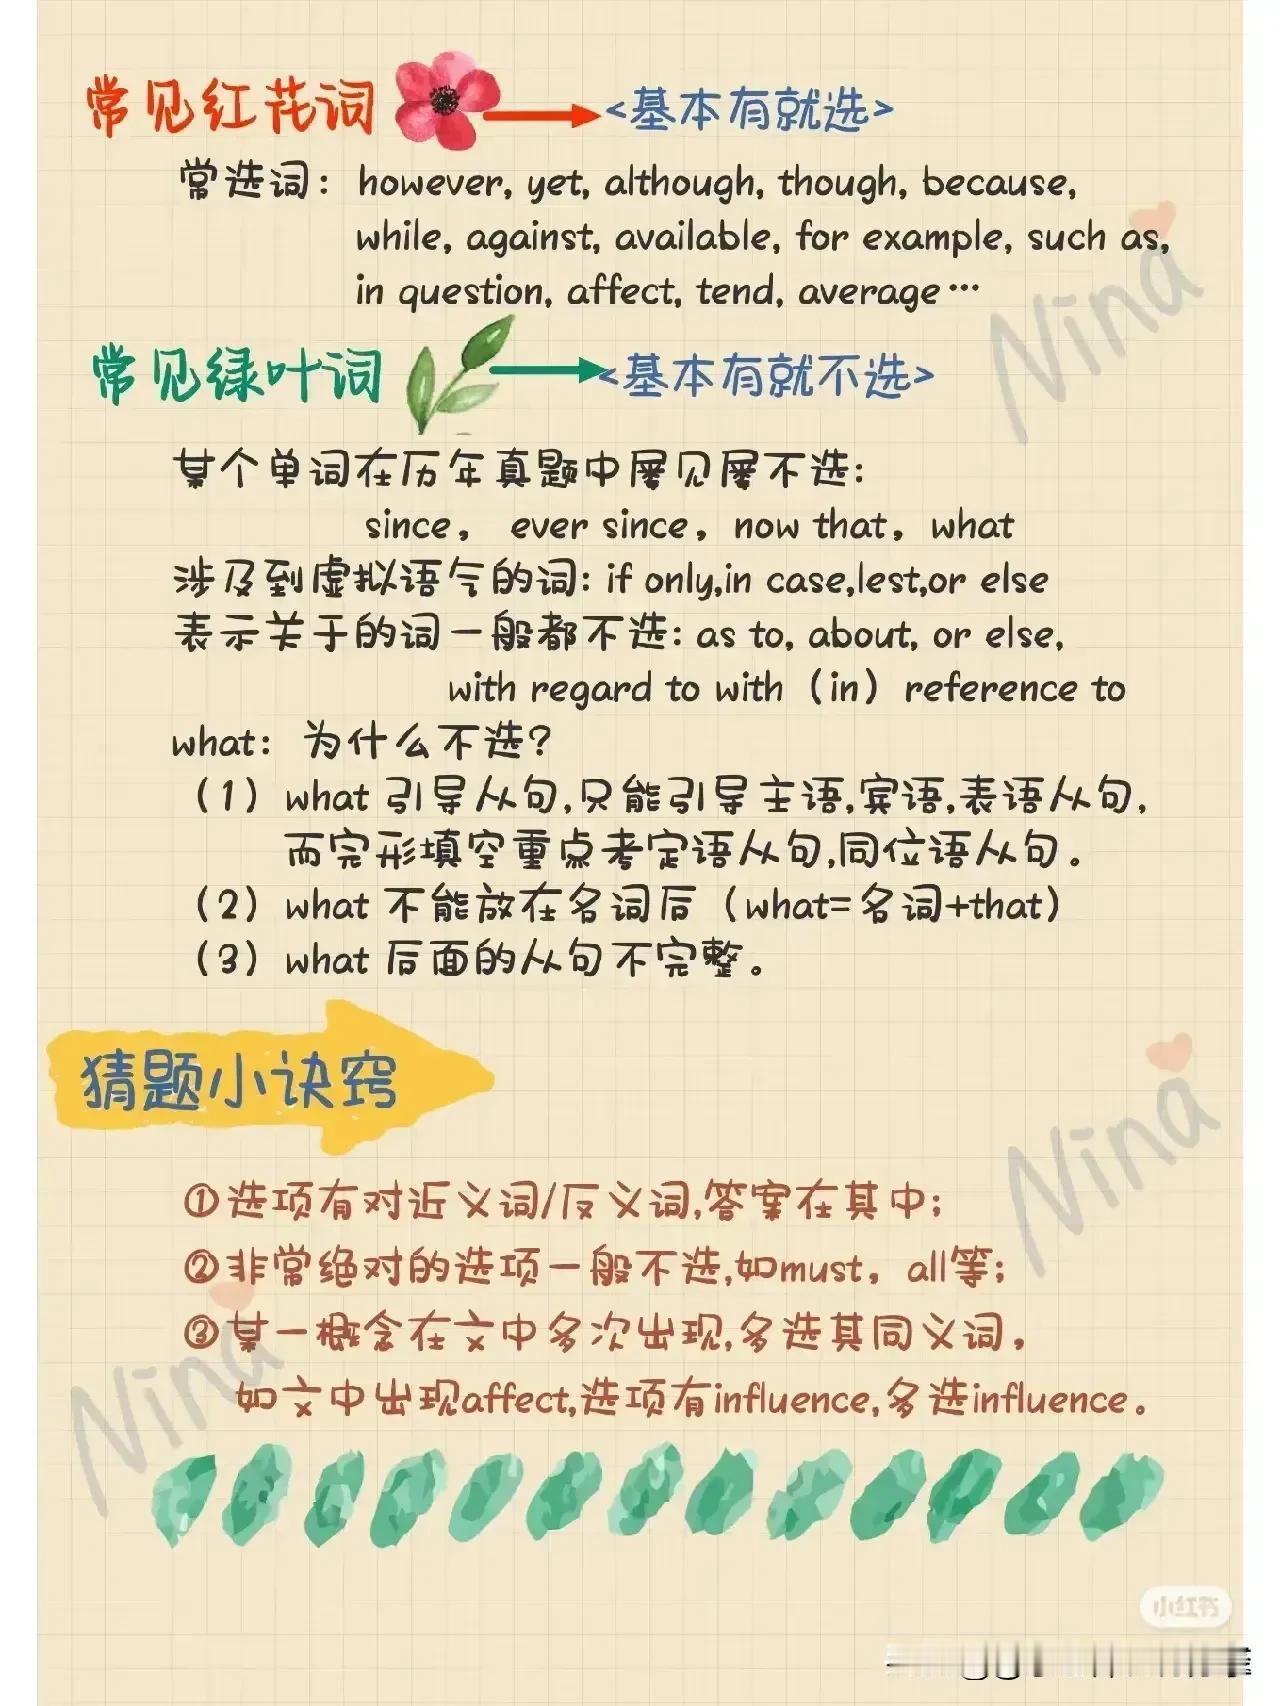 常见红花词
<基本有就选>
常选词：however, yet, although, though, because,
while, against, available, for example, such as,
in question, affect, tend, average…
常见绿叶词
<基本有就不选>
某个单词在历年真题中屡见屡不选：
since， ever since，now that，what
涉及到虚拟语气的词: if only,in case,lest,or else
表示关于的词一般都不选: as to, about, or else,
with regard to with（in）reference to
what：为什么不选？
（1）what 引导从句,只能引导主语,宾语,表语从句,
而完形填空重点考定语从句,同位语从句。
（2）what 不能放在名词后（what=名词+that）
（3）what 后面的从句不完整。
猜题小诀窍
①选项有对近义词/反义词,答案在其中;
②非常绝对的选项一般不选,如must，all等;
③某一概念在文中多次出现,多选其同义词，
如文中出现affect,选项有influence,多选influence。
Nina
Nina
Nina
小红书